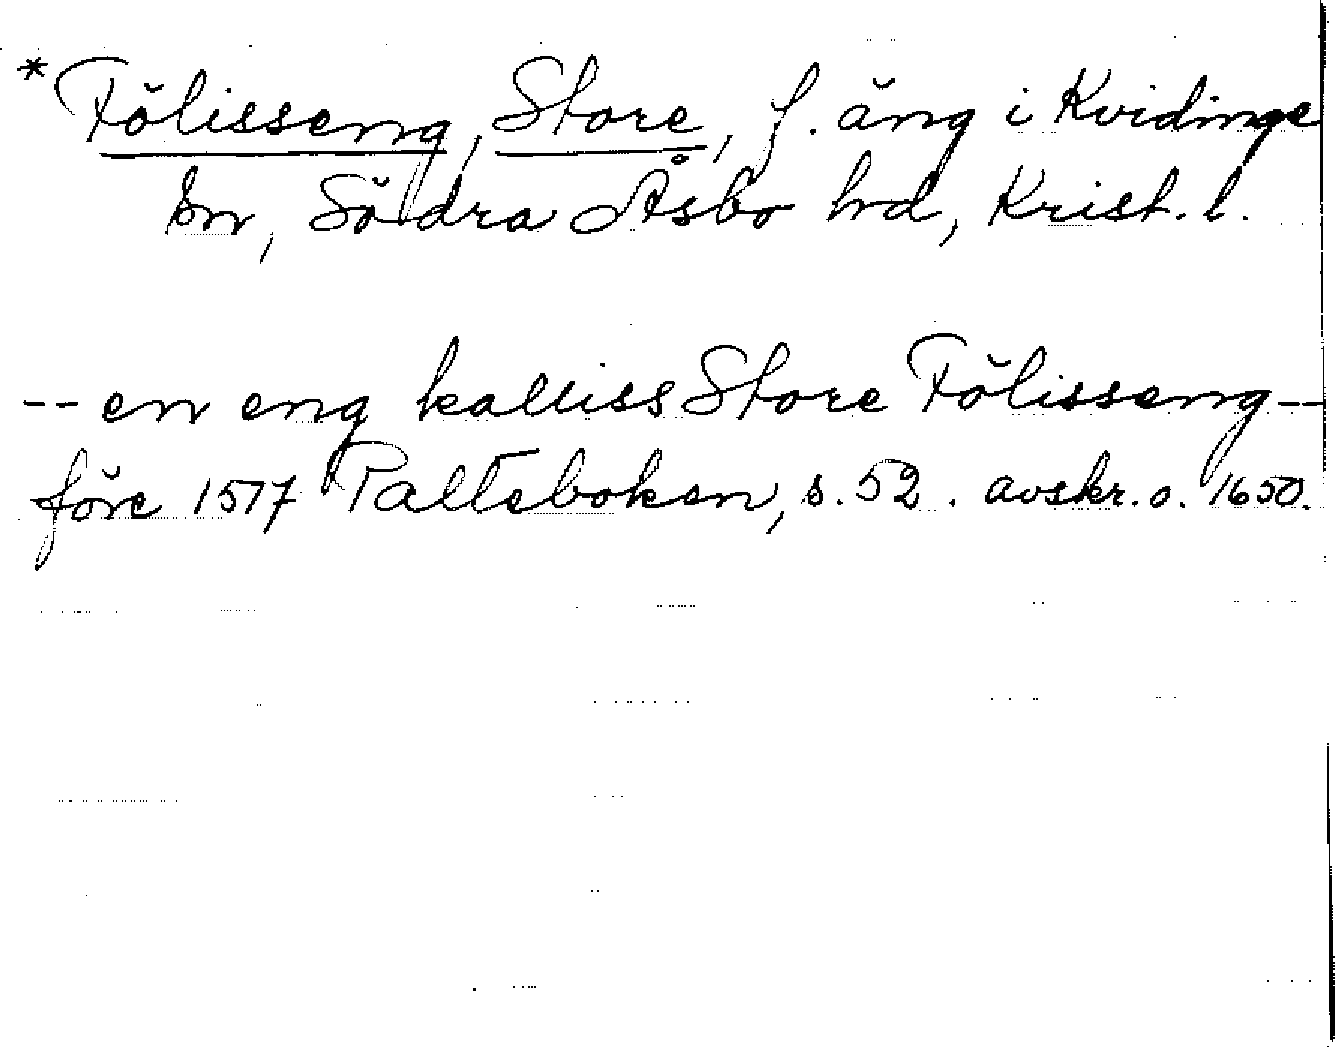 *Fölisseng, Store, f. äng i Kvidinge
sn, Södra Åsbo hd, Krist. l.
-- en eng kalliss Store Fölisseng --
före 1517 Palteboken, s. 52. avskr. o. 1650.